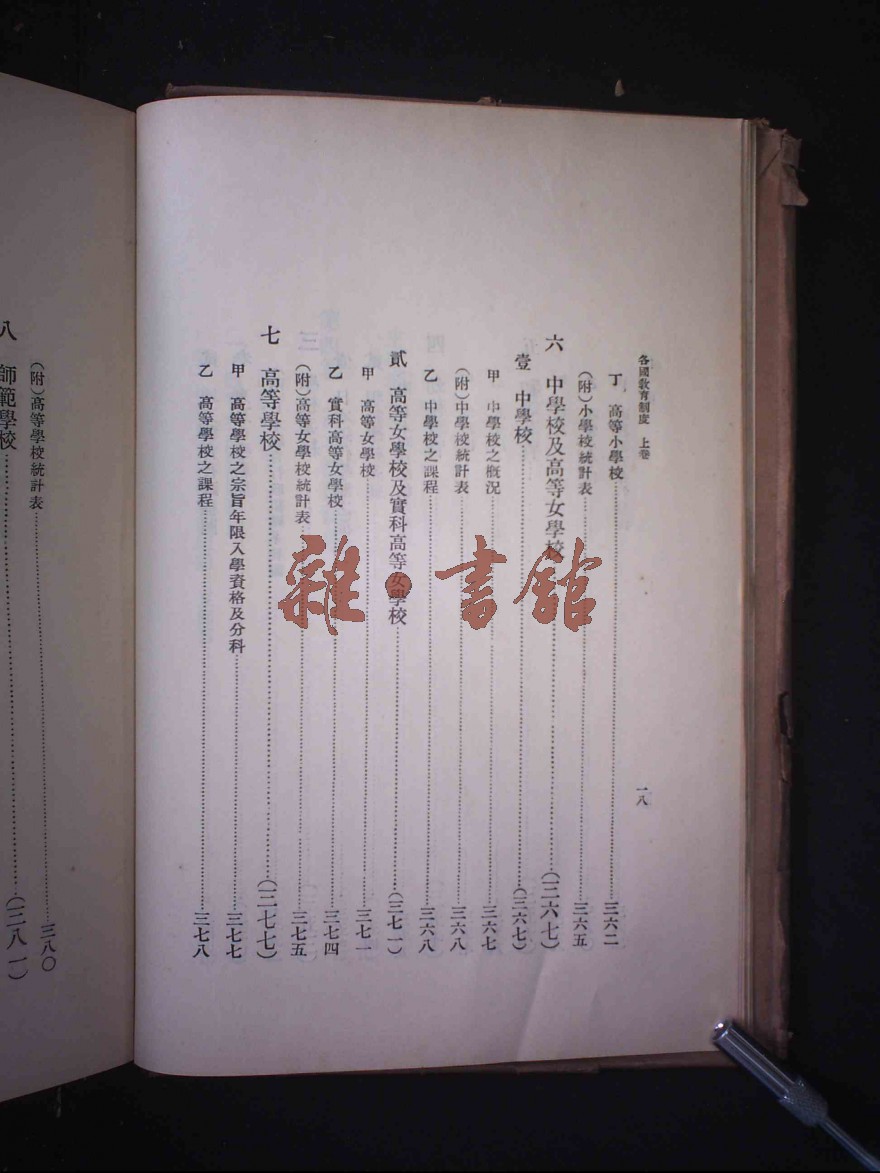 各國教育制度 上卷 一八
丁 高等小學校 三六二
(附)小學校統計表 三六五
六 中學校及高等女學校 (三六七)
壹 中學校 (三六七)
甲 中學校之概況 三六七
(附)中學校統計表 三六八
乙 中學校之課程 三六八
貳 高等女學校及實科高等女學校 (三七一)
甲 高等女學校 三七一
乙 實科高等女學校 三七四
(附)高等女學校統計表 三七五
七 高等學校 (三七七)
甲 高等學校之宗旨年限入學資格及分科 三七七
乙 高等學校之課程 三七八
(附)高等學校統計表 三八〇
八 師範學校 (三八一)
雜·書館